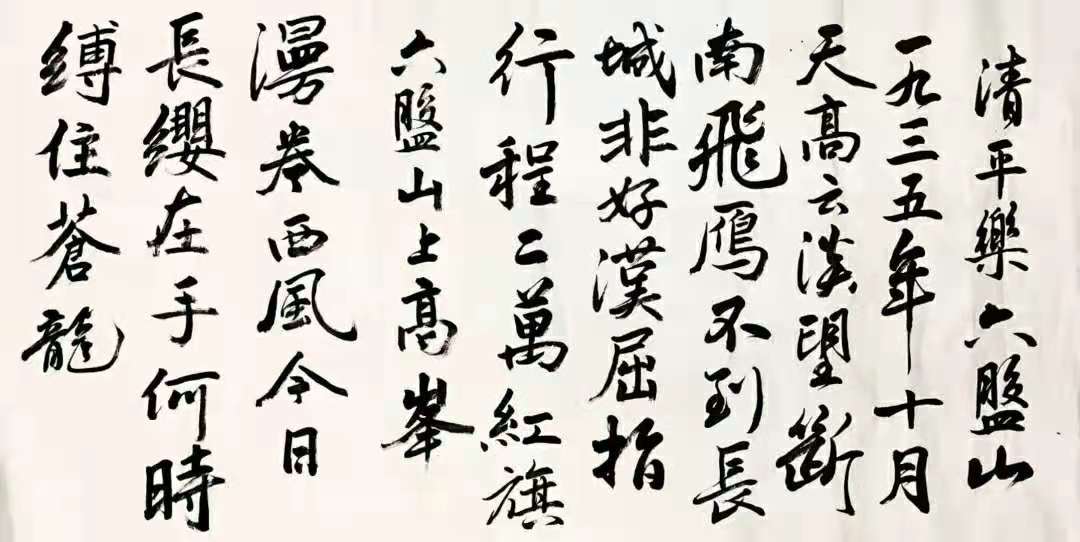 清平樂六盤山
一九三五年十月
天高云淡望斷
南飛鴈不到長
城非好漢屈指
行程二萬紅旗
六盤山上高峯
漫卷西風今日
長纓在手何時
縛住蒼龍